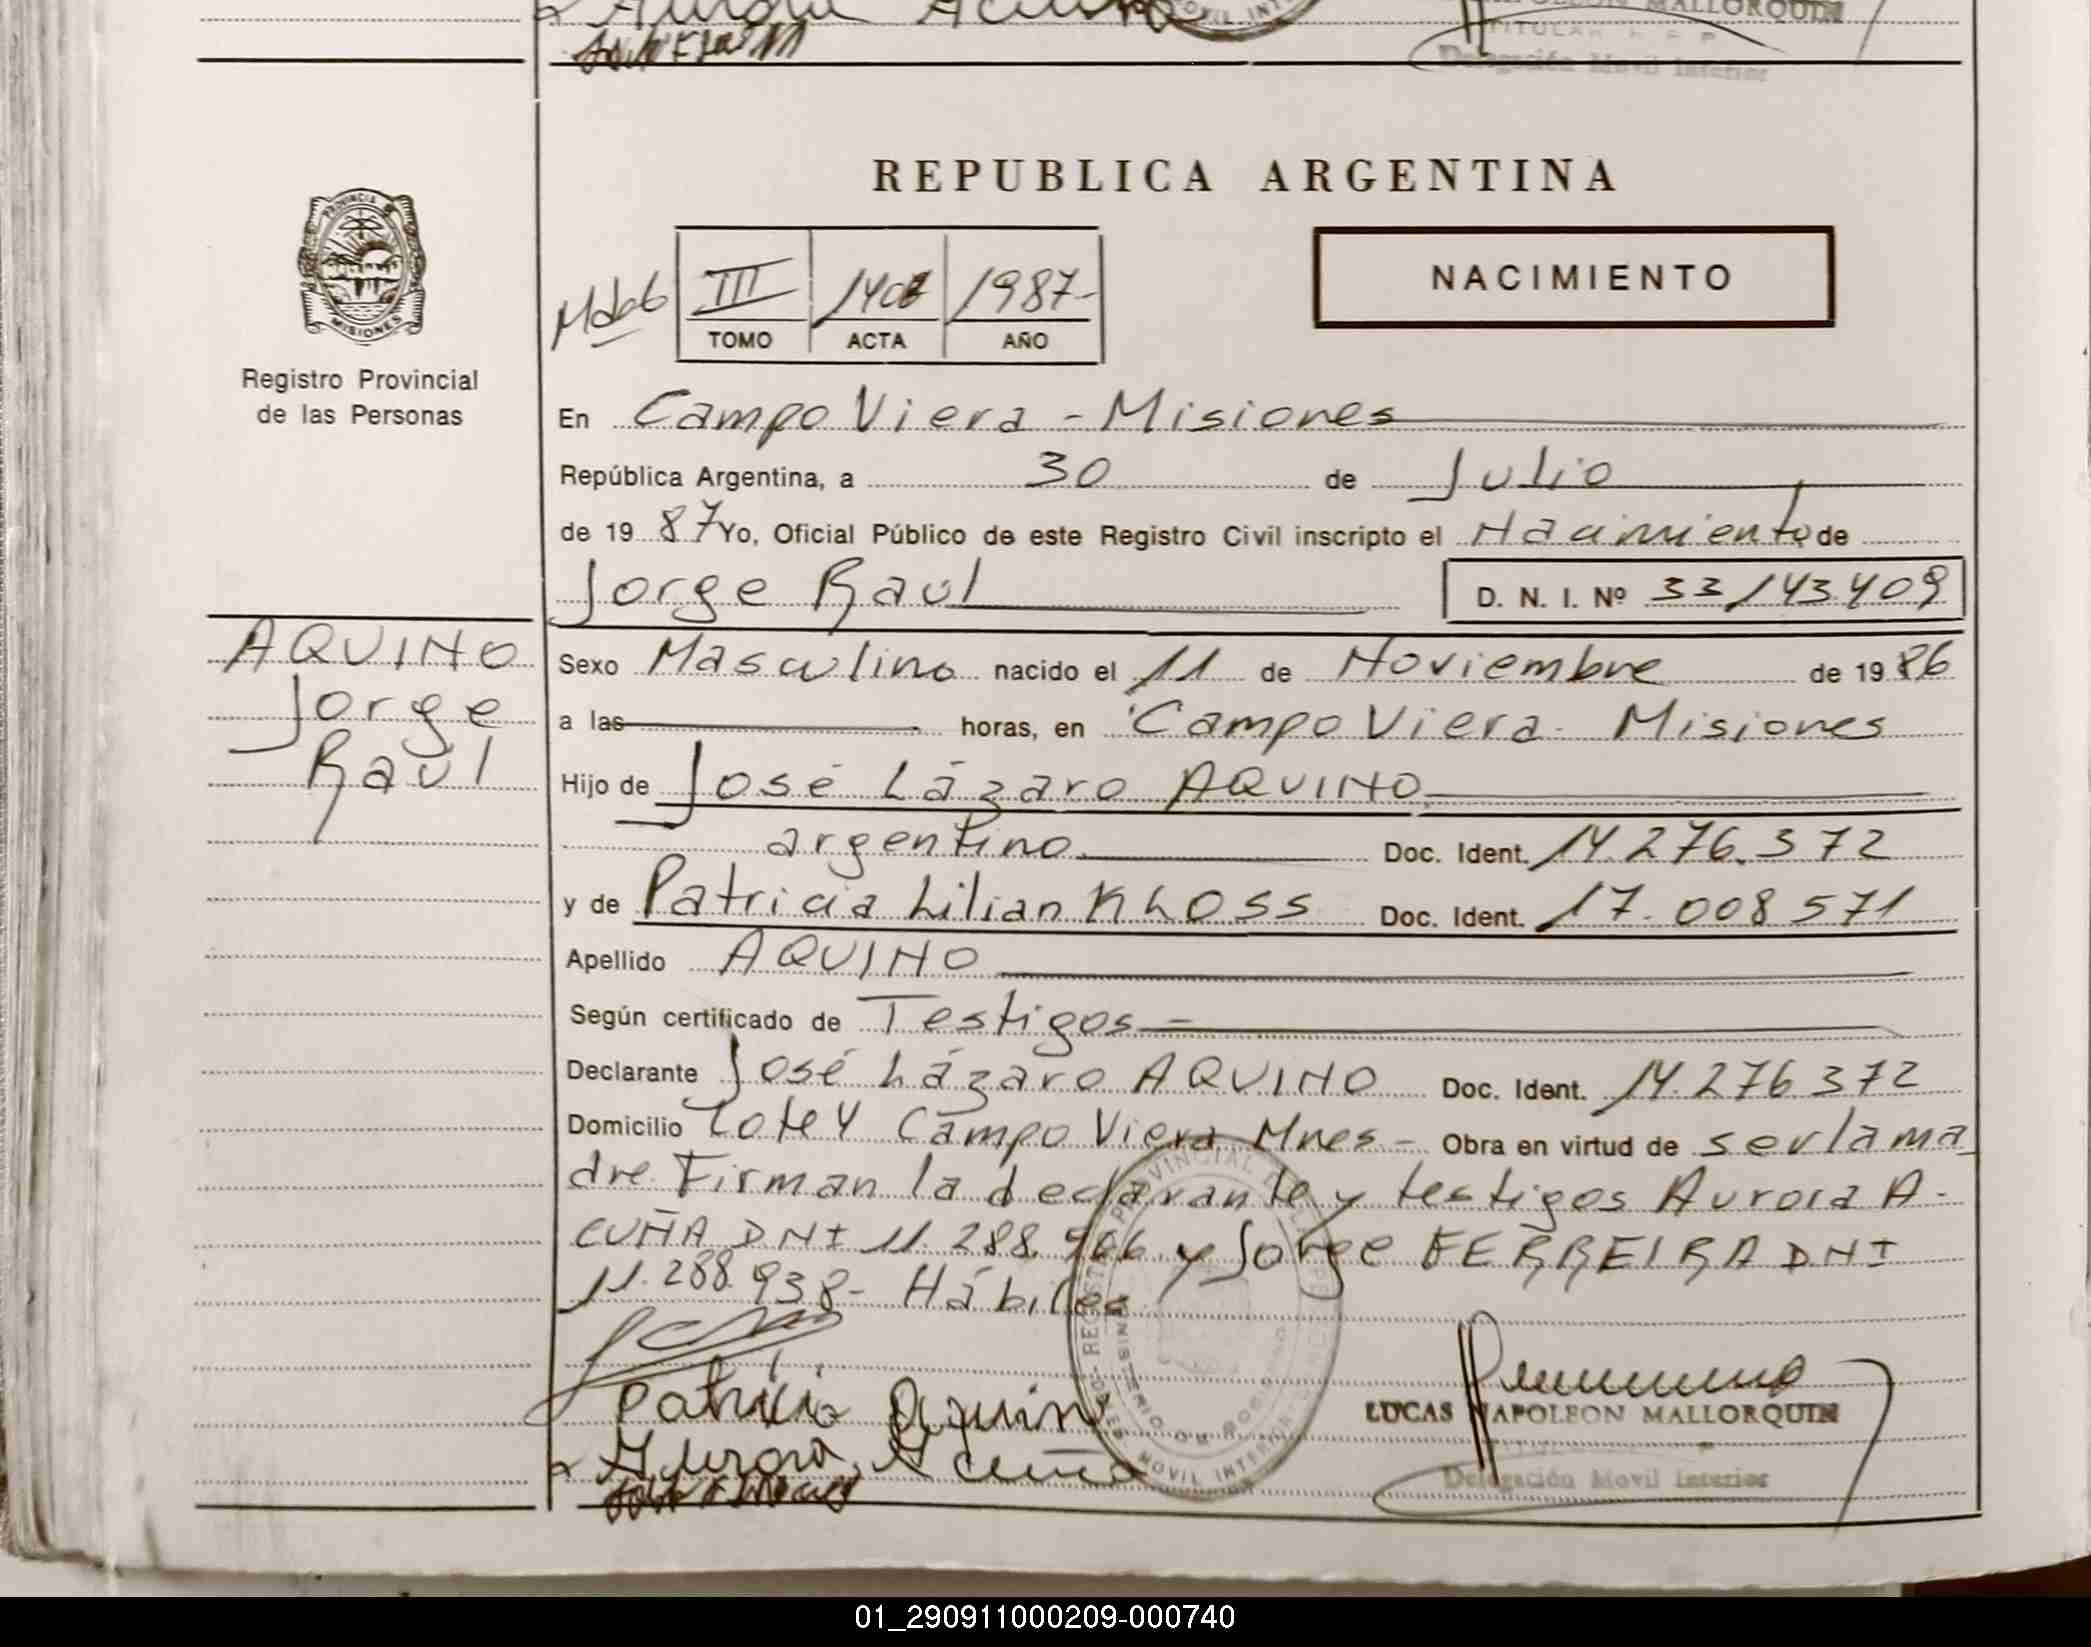 REPUBLICA ARGENTINA
NACIMIENTO
III 1987-
TOMO ACTA AÑO
PROVINCIA DE
MISIONES
Registro Provincial
de las Personas
En Campo Viera - Misiones
República Argentina, a 30 de Julio
de 19 87 Yo, Oficial Público de este Registro Civil inscripto el Nacimiento de
Jorge Raul D. N. I. Nº 33/143.409
AQUINO
Jorge
Raul
Sexo Masculino nacido el 11 de Noviembre de 19 86
a las horas, en Campo Viera - Misiones
Hijo de José Lázaro AQUINO
argentino Doc. Ident. 14.276.372
y de Patricia Lilian KLOSS Doc. Ident. 17.008 571
Apellido AQUINO
Según certificado de Testigos -
Declarante José Lázaro AQUINO Doc. Ident. 14.276.372
Domicilio Lote 4 Campo Viera, Mnes - Obra en virtud de ser la ma
dre. Firman la declarante y testigos Aurora A-
CUÑA DNI 11.288.966 y Jorge FERREIRA DNI
11.288.938- Hábiles
Patricia Aquino
Aurora Acuña
LUCAS NAPOLEON MALLORQUIN
Delegación Movil Interior
01_290911000209-000740